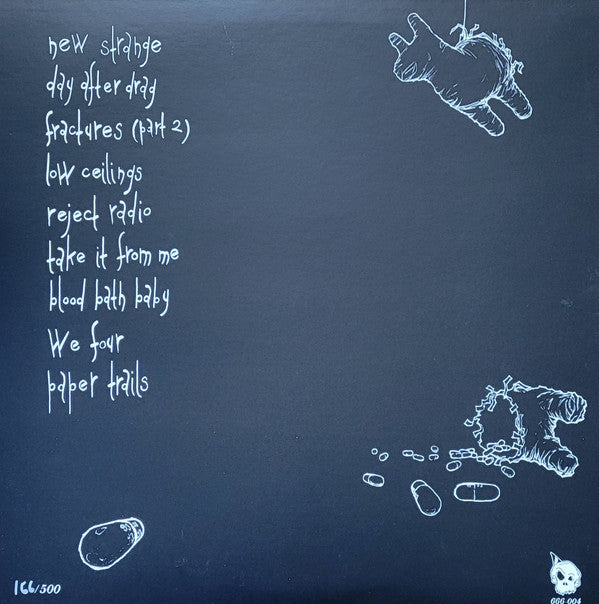 new strange
day after drag
fractures (part 2)
low ceilings
reject radio
take it from me
blood bath baby
We four
paper trails
166/500
666-004